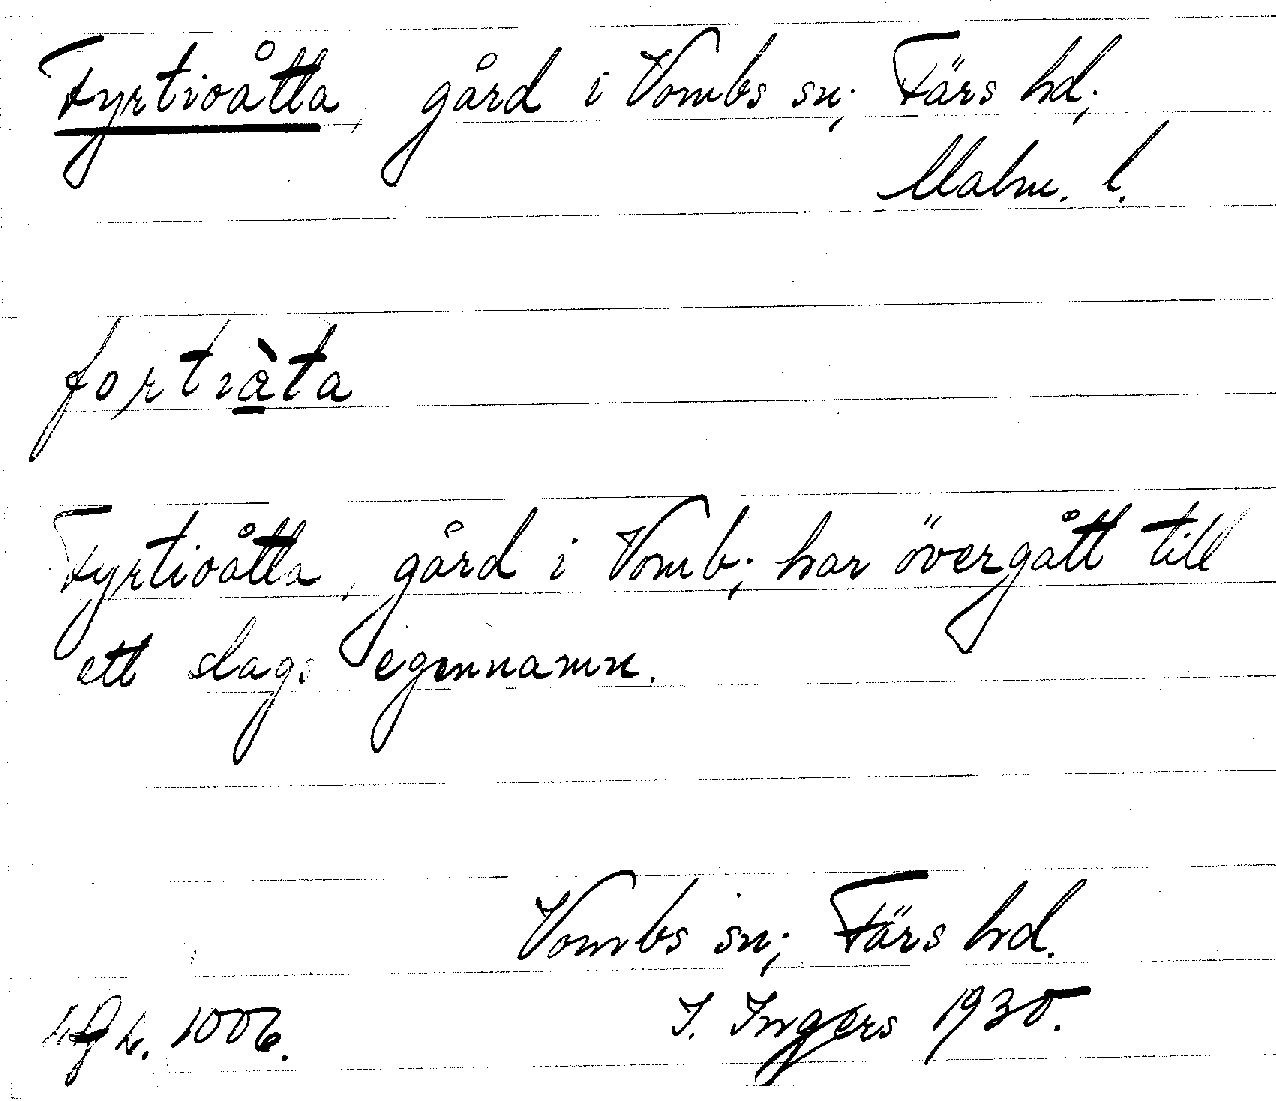 Fyrtioåtta, gård i Vombs sn; Färs hd;
Malm. l.
fortiàta
Fyrtioåtta, gård i Vomb; har övergått till
ett slags egennamn.
Vombs sn; Färs hd.
1006. I. Ingers 1930.